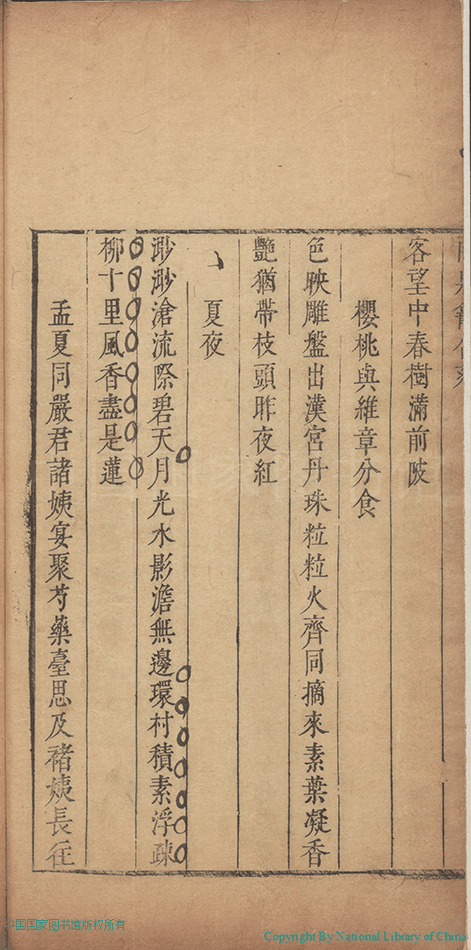 客望中春樹滿前陂
櫻桃與維章分食
色映雕盤出漢宮丹珠粒粒火齊同摘來素葉凝香
艷猶帶枝頭昨夜紅
夏夜
渺渺滄流際碧天月光水影澹無邊環村積素浮疎
柳十里風香盡是蓮
孟夏同嚴君諸姨宴聚芍藥臺思及褚姨長往
中国国家图书馆版权所有
Copyright By National Library of China